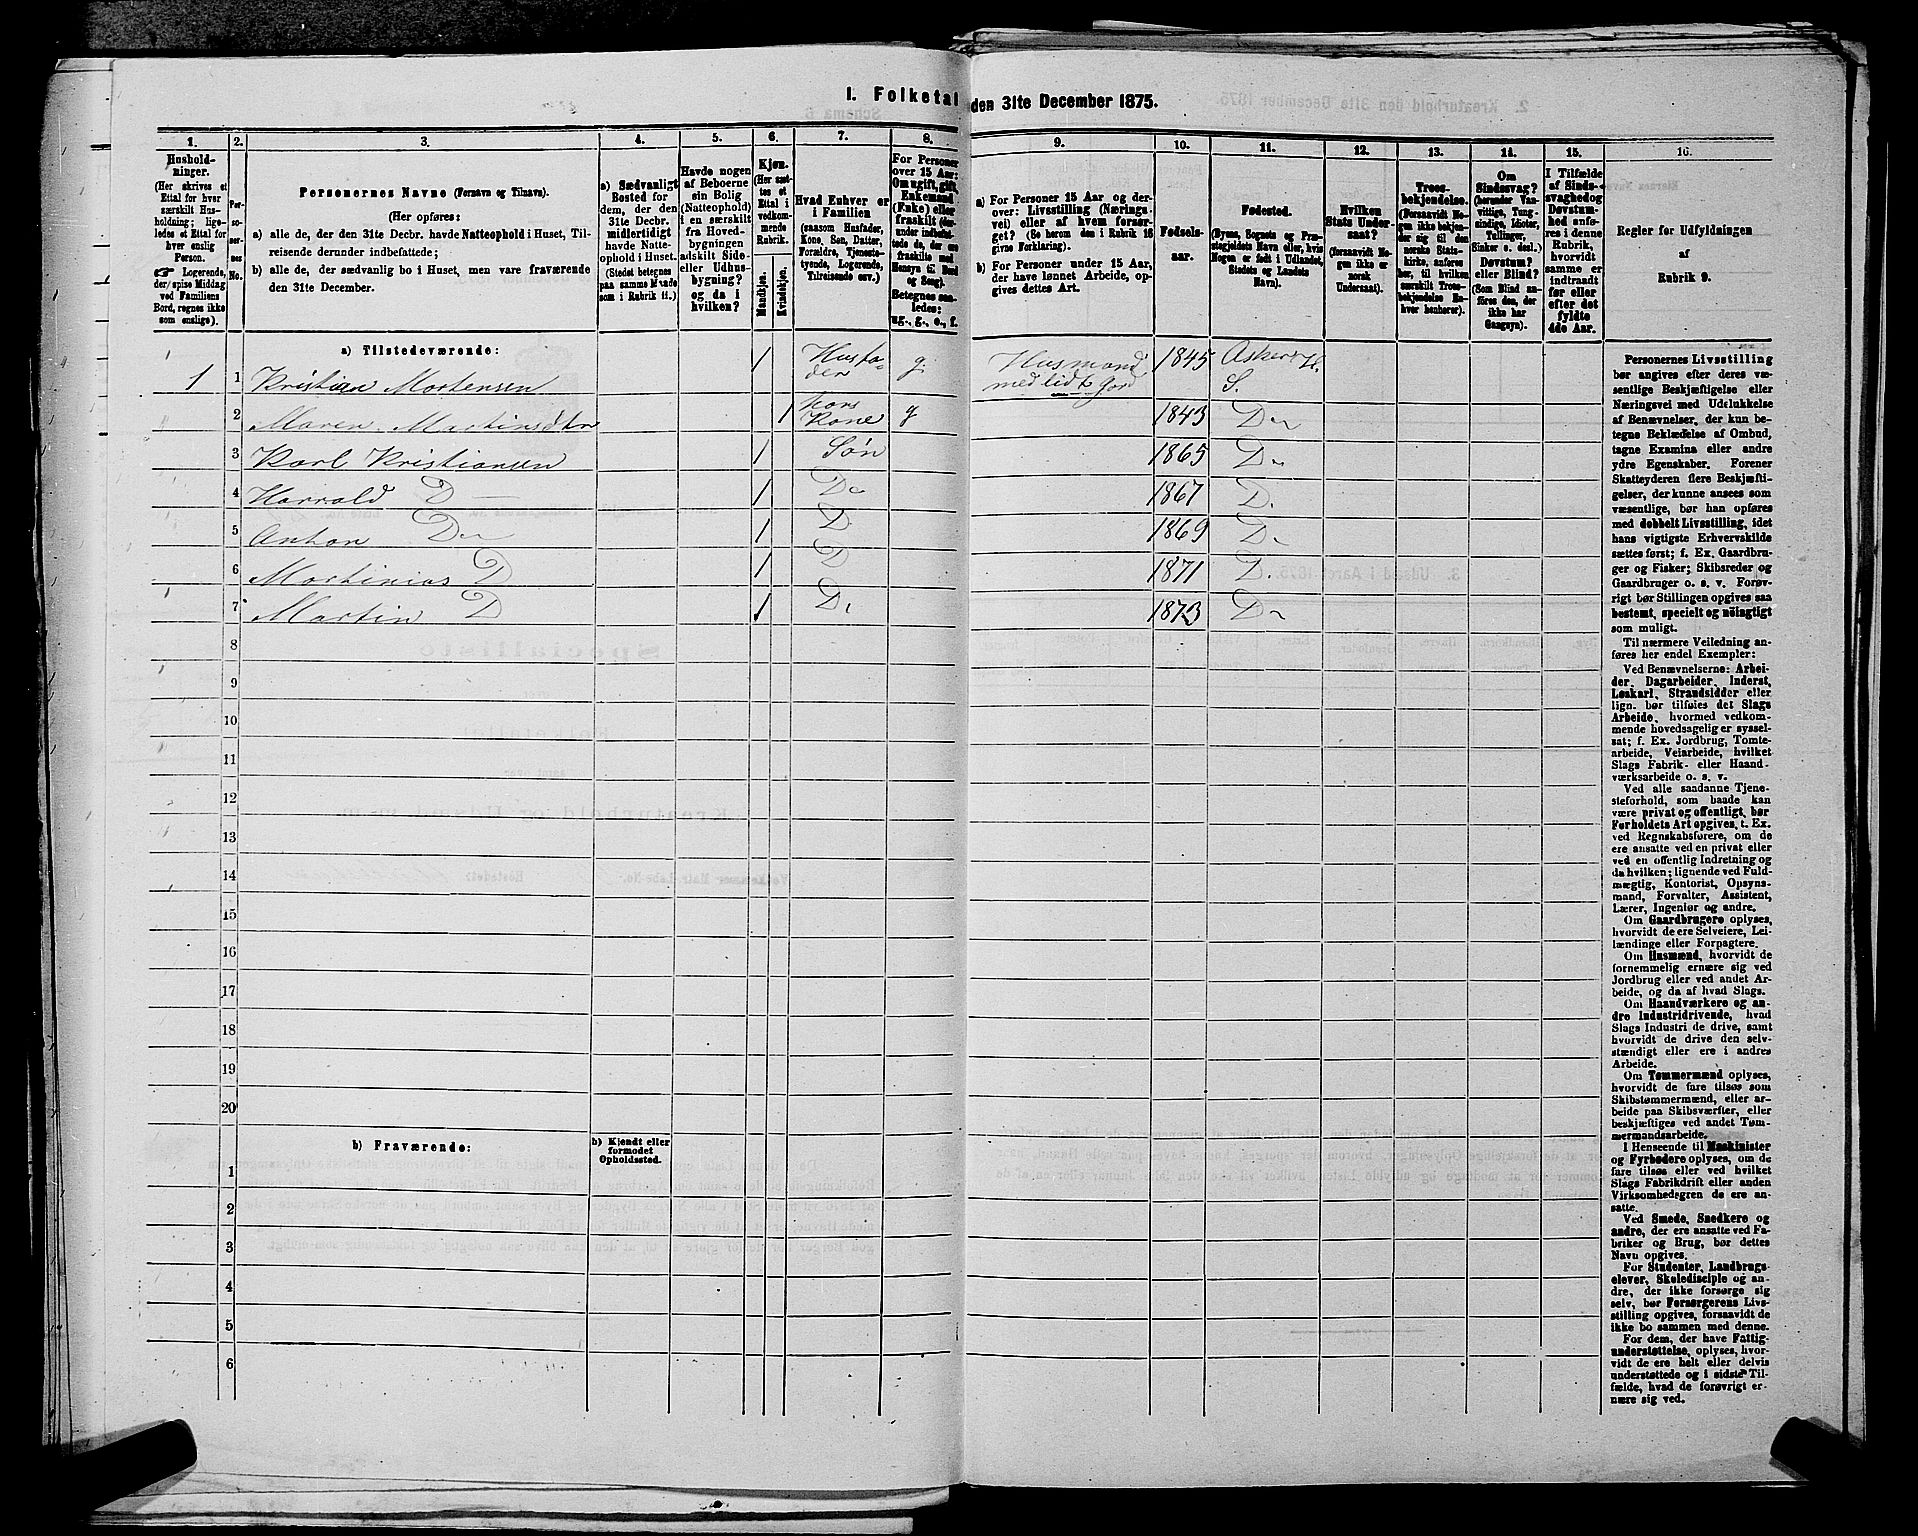 I. Folketal den 31te December 1875.
1. 2. 3. 4. 5. 6. 7. 8. 9. 10. 11. 12. 13. 14. 15. 16.
Hushold-
ninger.
(Her skrives et
Ettal for hver
særskilt Hus-
holdning; lige-
ledes et Ettal for
hver enslig
Person.
☞ Logerende,
der spise Middag
ved Familiens
Bord, regnes ikke
som enslige).
Per-
so-
ner-
nes
No.
Personernes Navne (Fornavn og Tilnavn).
(Her opføres:
a) alle de, der den 31te Decbr. havde Natteophold i Huset, Til-
reisende derunder indbefattede;
b) alle de, der sædvanlig bo i Huset, men vare fraværende
den 31te December.
a) Sædvanligt
Bosted for
dem, der den
31te Decbr.
midlertidigt
havde Natte-
ophold i Huset.
(Stedet betegnes
paa samme Maade
som i Rubrik 11.)
Havde nogen
af Beboerne
sin Bolig
(Natteophold)
i en særskilt
fra Hoved-
bygningen
adskilt Side-
eller Udhus-
bygning?
og da i
hvilken?
Kjøn.
(Her sæt-
tes et
Ettal i
vedkom-
mende
Rubrik.
Mandkjøn.
Kvindekjøn.
Hvad Enhver er
i Familien
(saasom Husfader,
Kone, Søn, Datter,
Forældre, Tjeneste-
tyende, Logerende,
Tilreisende osv.)
For Personer
over 15 Aar:
Om ugift, gift,
Enkemand
(Enke) eller
fraskilt (der-
under indbefat-
tede de, der ere
fraskilte med
Hensyn til Bord
og Seng).
Betegnes saa-
ledes:
ug., g., e., f.
a) For Personer 15 Aar og der-
over: Livsstilling (Nærings-
vei) eller af hvem forsør-
get? (Se herom den i Rubrik 16
givne Forklaring).
b) For Personer under 15 Aar,
der have lønnet Arbeide, op-
gives dettes Art.
Fødsels-
aar.
Fødested.
(Byens, Sognets og Præ-
stegjeldets Navn eller, hvis
Nogen er født i Udlandet,
Stedets og Landets
Navn).
Hvilken
Stats Under-
saat?
(forsaavidt No-
gen ikke er
norsk
Undersaat).
Troes-
bekjendelse.
(Forsaavidt No-
gen ikke bekjen-
der sig til den
norske Stats-
kirke, anføres
her, til hvilken
særskilt Troes-
bekjendelse En-
hver henhører).
Om
Sindssvag?
(herunder Van-
vittige, Tung-
sindige, Idioter,
Tullinger,
Sinker o. desl.)
Døvstum?
eller Blind?
(Som Blind an-
føres den, der
ikke har
Gangsyn).
I Tilfælde
af Sinds-
svaghed og
Døvstum-
hed anfø-
res i denne
Rubrik,
hvorvidt
samme er
indtraadt
før eller
efter det
fyldte
4de Aar.
Regler for Udfyldningen
af
Rubrik 9.
a) Tilstedeværende:
1 1 Kristian Mortensen 1 Husfa-
der g. Husmand
med lidt Jord 1845 Asker H.
S.
2 Maren Martinsdtr 1 hans
Kone g 1843 Do
3 Karl Kristiansen 1 Søn 1865 Do
4 Harrald D 1 Do 1867 D.
5 Anton Do 1 D 1869 Do
6 Martinius D 1 D 1871 D.
7 Martin D 1 D. 1873 Do
8
9
10
11
12
13
14
15
16
17
18
19
20
b) Fraværende:
b) Kjendt eller
formodet
Opholdssted.
1
2
3
4
5
6
Personernes Livsstilling
bør angives efter deres væ-
sentlige Beskjæftigelse eller
Næringsvei med Udelukkelse
af Benævnelser, der kun be-
tegne Beklædelse af Ombud,
tagne Examina eller andre
ydre Egenskaber. Forener
Skatteyderen flere Beskjæfti-
gelser, der kunne ansees som
væsentlige, bør han opføres
med dobbelt Livsstilling, idet
hans vigtigste Erhvervskilde
sættes først; f. Ex. Gaardbru-
ger og Fisker; Skibsreder og
Gaardbruger o. s. v. Forøv-
rigt bør Stillingen opgives saa
bestemt, specielt og nøiagtigt
som muligt.
Til nærmere Veiledning an-
føres her endel Exempler:
Ved Benævnelserne: Arbei-
der, Dagarbeider, Inderst,
Løskarl, Strandsidder eller
lign. bør tilføies det Slags
Arbeide, hvormed vedkom-
mende hovedsagelig er syssel-
sat; f. Ex. Jordbrug, Tomte-
arbeide, Veiarbeide, hvilket
Slags Fabrik- eller Haand-
værksarbeide o. s. v.
Ved alle saadanne Tjene-
steforhold, som baade kan
være privat og offentligt, bør
Forholdets Art opgives, t. Ex.
ved Regnskabsførere, om de
ere ansatte ved en privat eller
ved en offentlig Indretning og
da hvilken; lignende ved Fuld-
mægtig, Kontorist, Opsyns-
mand, Forvalter, Assistent,
Lærer, Ingeniør og andre.
Om Gaardbrugere oplyses,
hvorvidt de ere Selveiere, Lei-
lændinge eller Forpagtere.
Om Husmænd, hvorvidt de
fornemmelig ernære sig ved
Jordbrug eller ved andet Ar-
beide, og da af hvad Slags.
Om Haandværkere og an-
dre Industridrivende, hvad
Slags Industri de drive, samt
hvorvidt de drive den selv-
stændigt eller ere i andres
Arbeide.
Om Tømmermænd oplyses,
hvorvidt de fare tilsøs som
Skibstømmermænd, eller ar-
beide paa Skibsværfter, eller
beskjæftiges ved andet Tøm-
mermandsarbeide.
I Henseende til Maskinister
og Fyrbødere oplyses, om de
fare tilsøs eller ved hvilket
Slags Fabrikdrift eller anden
Virksomhedsgren de ere an-
satte.
Ved Smede, Snedkere og
andre, der ere ansatte ved Fa-
briker og Brug, bør dettes
Navn opgives.
For Studenter, Landbrugs-
elever, Skoledisciple og an-
dre, der ikke forsørge sig
selv, bør Forsørgerens Livs-
stilling opgives, forsaavidt de
ikke bo sammen med denne.
For dem, der have Fattig-
understøttelse, oplyses, hvor-
vidt de ere helt eller delvis
understøttede og i sidste Til-
fælde, hvad de forøvrigt er-
nære sig ved.